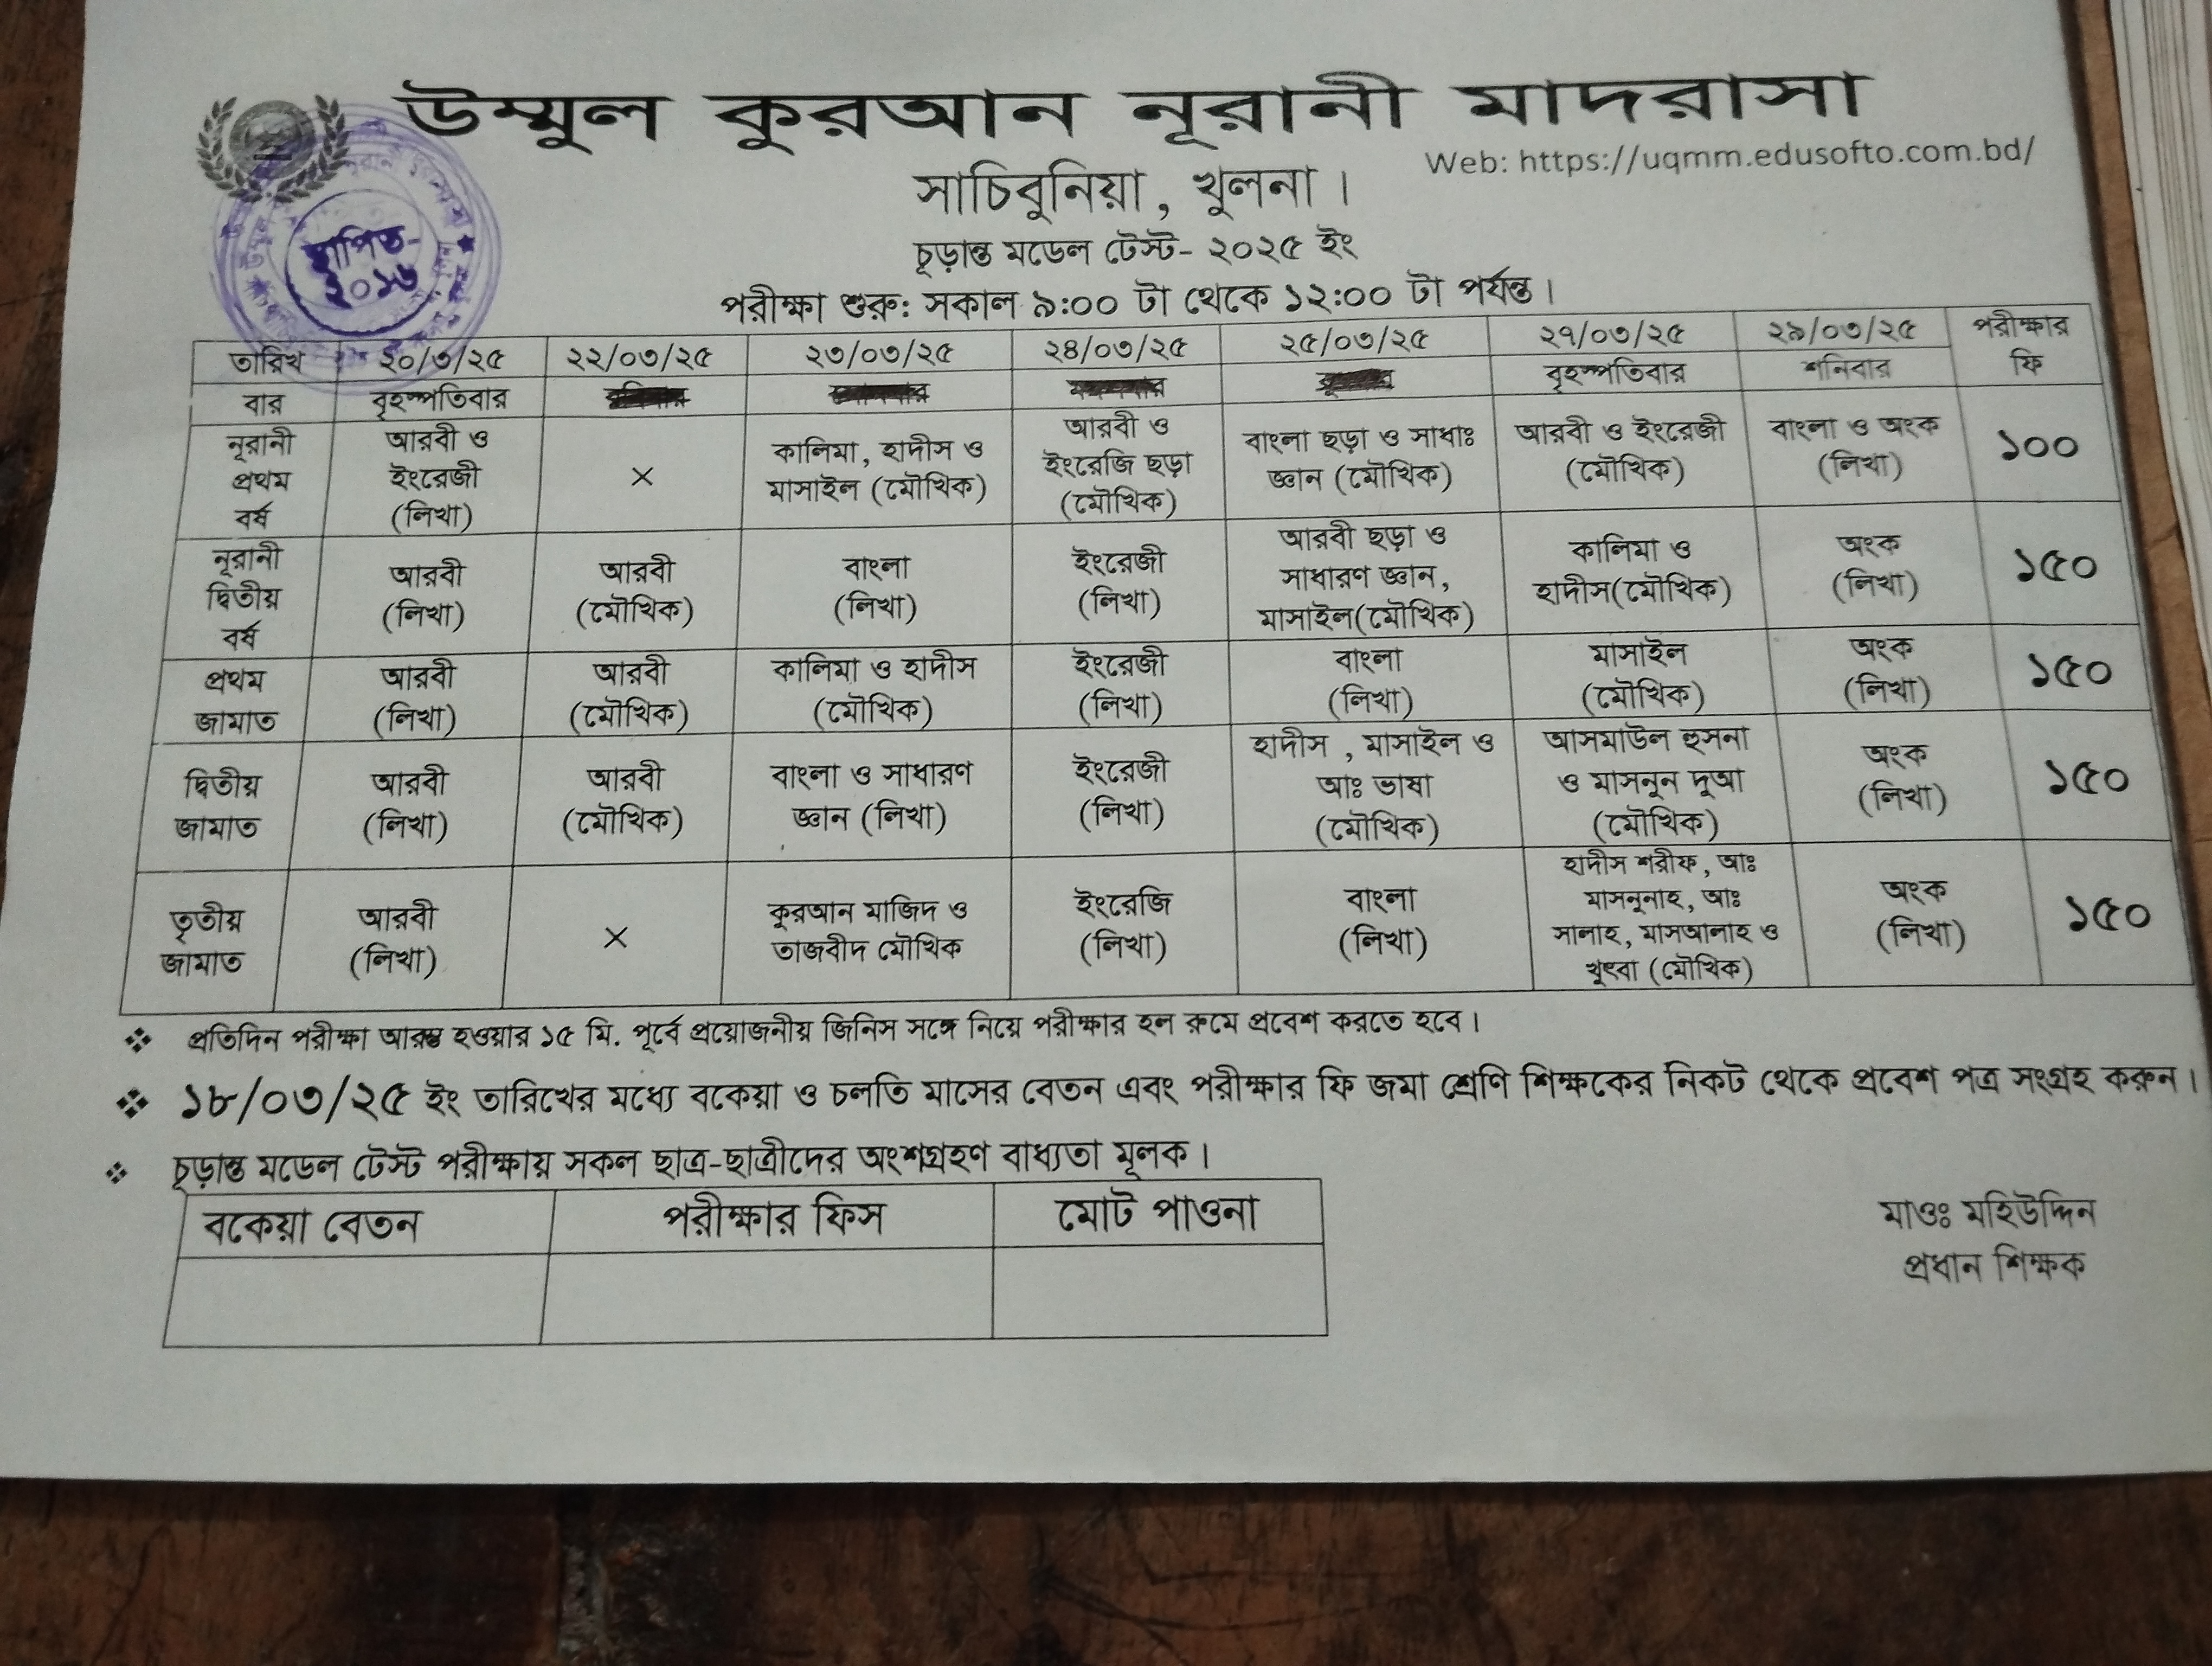 উম্মুল কুরআন নূরানী মাদরাসা
Web: https://uqmm.edusofto.com.bd/
সাচিবুনিয়া, খুলনা।
স্থাপিত-
২০১৬
চূড়ান্ত মডেল টেস্ট- ২০২৫ ইং
পরীক্ষা শুরু: সকাল ৯:০০ টা থেকে ১২:০০ টা পর্যন্ত।
তারিখ ২০/৩/২৫ ২২/০৩/২৫ ২৩/০৩/২৫ ২৪/০৩/২৫ ২৫/০৩/২৫ ২৭/০৩/২৫ ২৯/০৩/২৫ পরীক্ষার ফি
বার বৃহস্পতিবার বৃহস্পতিবার শনিবার
নূরানী প্রথম বর্ষ আরবী ও ইংরেজী (লিখা) × কালিমা, হাদীস ও মাসাইল (মৌখিক) আরবী ও ইংরেজি ছড়া (মৌখিক) বাংলা ছড়া ও সাধাঃ জ্ঞান (মৌখিক) আরবী ও ইংরেজী (মৌখিক) বাংলা ও অংক (লিখা) ১০০
নূরানী দ্বিতীয় বর্ষ আরবী (লিখা) আরবী (মৌখিক) বাংলা (লিখা) ইংরেজী (লিখা) আরবী ছড়া ও সাধারণ জ্ঞান, মাসাইল(মৌখিক) কালিমা ও হাদীস(মৌখিক) অংক (লিখা) ১৫০
প্রথম জামাত আরবী (লিখা) আরবী (মৌখিক) কালিমা ও হাদীস (মৌখিক) ইংরেজী (লিখা) বাংলা (লিখা) মাসাইল (মৌখিক) অংক (লিখা) ১৫০
দ্বিতীয় জামাত আরবী (লিখা) আরবী (মৌখিক) বাংলা ও সাধারণ জ্ঞান (লিখা) ইংরেজী (লিখা) হাদীস , মাসাইল ও আঃ ভাষা (মৌখিক) আসমাউল হুসনা ও মাসনুন দুআ (মৌখিক) অংক (লিখা) ১৫০
তৃতীয় জামাত আরবী (লিখা) × কুরআন মাজিদ ও তাজবীদ মৌখিক ইংরেজি (লিখা) বাংলা (লিখা) হাদীস শরীফ, আঃ মাসনুনাহ, আঃ সালাহ, মাসআলাহ ও খুৎবা (মৌখিক) অংক (লিখা) ১৫০
❖ প্রতিদিন পরীক্ষা আরম্ভ হওয়ার ১৫ মি. পূর্বে প্রয়োজনীয় জিনিস সঙ্গে নিয়ে পরীক্ষার হল রুমে প্রবেশ করতে হবে।
❖ ১৮/০৩/২৫ ইং তারিখের মধ্যে বকেয়া ও চলতি মাসের বেতন এবং পরীক্ষার ফি জমা শ্রেণি শিক্ষকের নিকট থেকে প্রবেশ পত্র সংগ্রহ করুন।
❖ চূড়ান্ত মডেল টেস্ট পরীক্ষায় সকল ছাত্র-ছাত্রীদের অংশগ্রহণ বাধ্যতা মূলক।
বকেয়া বেতন পরীক্ষার ফিস মোট পাওনা
মাওঃ মহিউদ্দিন
প্রধান শিক্ষক